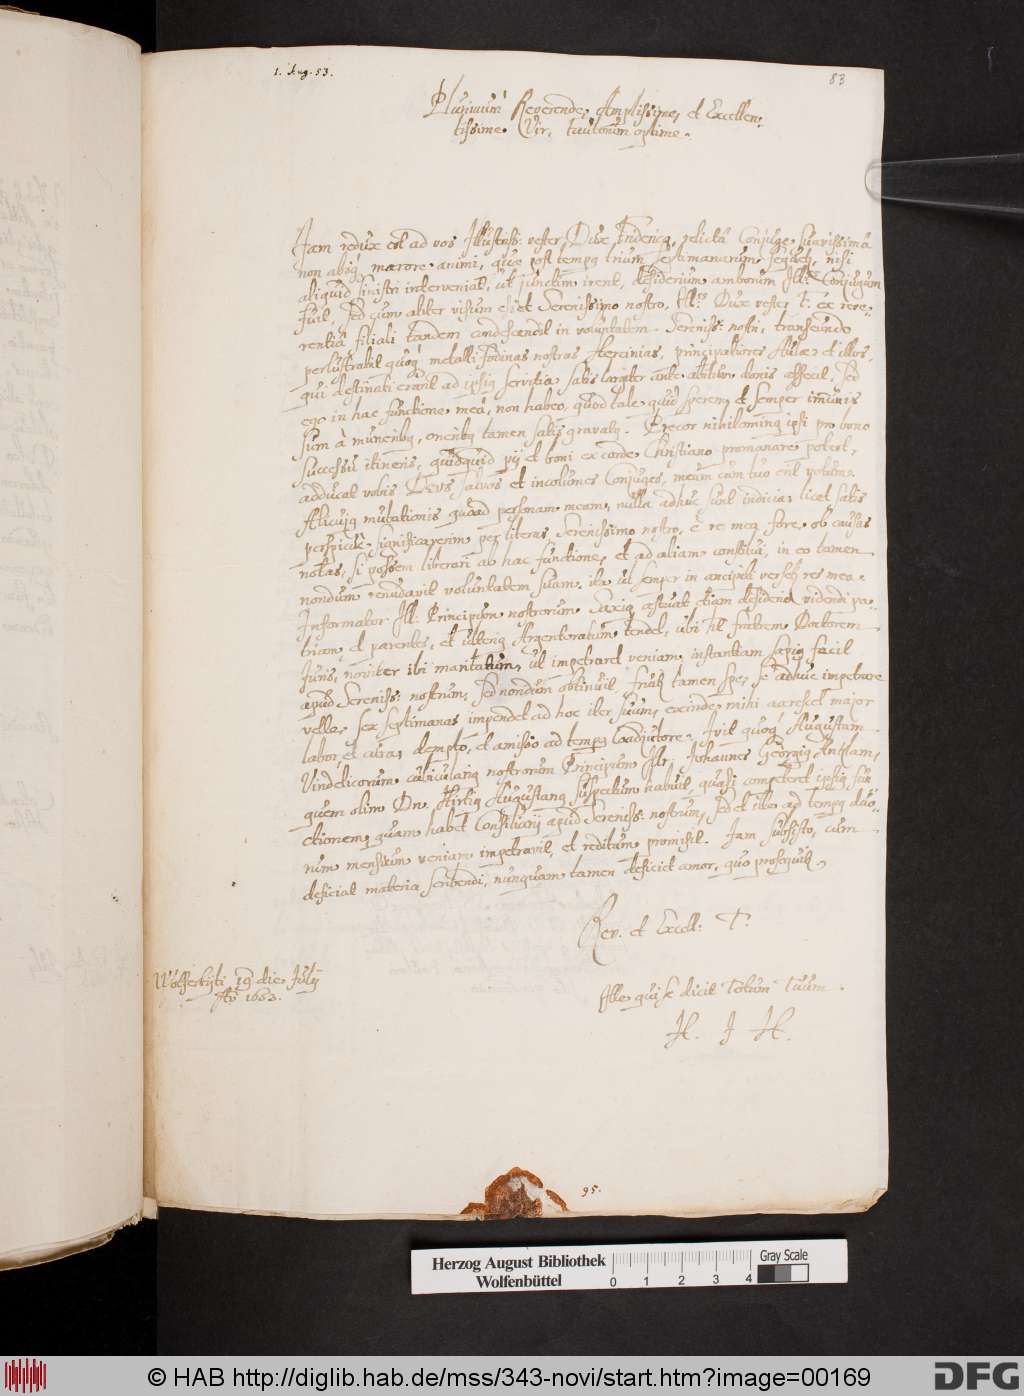 1. Aug. 53.
83
Plurimum Reverende, Amplissime, et Excellen-
tissime Vir, fautorum optime.
Jam redux est ad vos Illustriss: vester Dux Frideric9, relictâ Conjuge suavissimâ
non absq3 mœrore animi, quæ post temp9 trium septimanarum sequet, nisi
aliquid sinistri interveniat, ut junctim irent, desiderium amborum Ill. Conjugum
fuit, sed cum aliter visum esset Serenissimo nostro, Ill. Dux vester F. ex reve-
rentiâ filiali tandem condescendit in voluntatem Sereniss: nostri, transeundo
perlustrabit quoq3 metalli fodinas nostras Hercinias, principaliores Aulæ et illos,
qui destinati erant ad ipsi9 servitia satis largiter ante abitum donis affecit, sed
ego in hac functione meâ, non habeo, quod tale quid sperem, et semper immunis
sum à munerib9, onerib9 tamen satis gravat9. Precor nihilomin9 ipsi pro bono
successu itineris, quidquid pij et boni ex corde Christiano promanare potest,
adducat vobis Deus salvos et incolumes Conjuges, meum cum tuo erit votum.
Alicui9 mutationis quoad personam meam, nulla adhuc sunt indicia, licet satis
perspicuè significaverim per literas Serenissimo nostro, è re meâ fore, ob causas
notas, si possem liberari ab hac functione, et ad aliam constitui, in eo tamen
nondum revelavit voluntatem suam, ita ut semper in ancipiti verset res mea.
Informator Ill: Principum nostrorum Saxi9 æstuat etiam desiderio videndi pa-
triam, et parentes, et ulteri9 Argentoratum tendet, ubi sit fratrem Doctorem
Juris, noviter ibi maritatum, ut impetraret veniam, instantiam sæpi9 facit
apud Sereniss: nostrum, sed nondum obtinuit, fruit tamen spe, se adhuc impetrare
velle, sex septimanas impendet ad hoc iter suum, exinde mihi accrescet major
labor et cura, dempto, et amisso ad temp9 Coadjutore. Ivit quoq3 Augustam
Vindelicorum cubiculari9 nostrorum Principum Ill, Johannes Georgi9 Anslam,
quem olim Dn. Hirti9 Augustan9 suspectum habuit, quasi competeret ipsi9 fun-
ctionem, quam habet Consiliarij apud Sereniss: nostrum, sed et ille ad temp9 duo-
rum mensium veniam impetravit, et reditum promisit. Jam subsisto, cum
deficiat materia scribendi, nunquam tamen deficiet amor, quo prosequit
Rev. et Excell: T.
Wolferbyti 19 die Julij
Aō 1653.
Ille qui se dicit totum tuum
H. J H.
95.
Herzog August Bibliothek
Wolfenbüttel
0 1 2 3 4
Gray Scale
© HAB http://diglib.hab.de/mss/343-novi/start.htm?image=00169
DFG